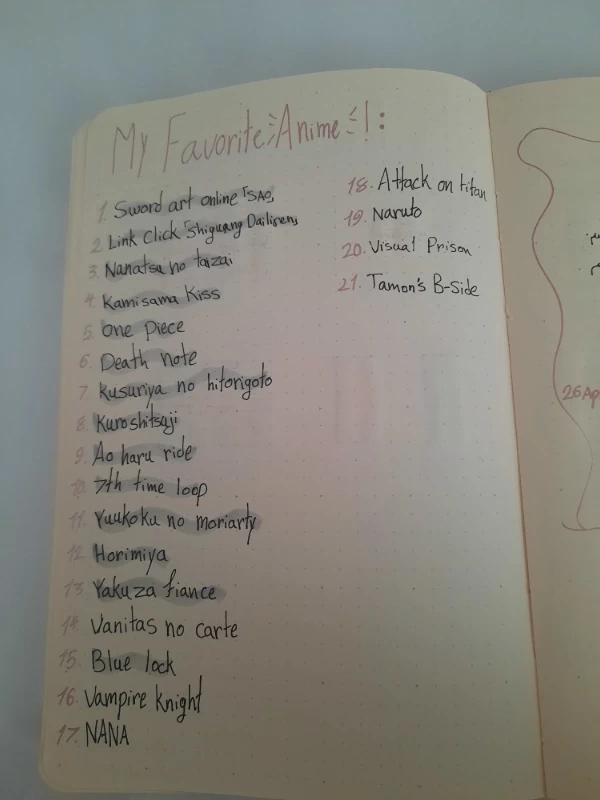 My Favorite Anime !:
1. Sword art online「SAO」
2. Link Click「Shiguang Dailiren」
3. Nanatsu no taizai
4. Kamisama Kiss
5. One Piece
6. Death note
7. Kusuriya no hitorigoto
8. Kuroshitsuji
9. Ao haru ride
10. 7th time loop
11. Yuukoku no moriarty
12. Horimiya
13. Yakuza fiance
14. Vanitas no carte
15. Blue lock
16. Vampire knight
17. NANA
18. Attack on titan
19. Naruto
20. Visual Prison
21. Tamon's B-Side
26 Ap